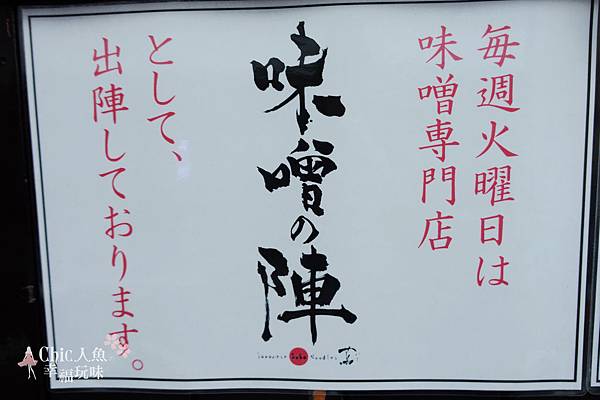 毎週火曜日は
味噌専門店
味噌の陣
として、
出陣しております。
Japanese Soba Noodles
Chic人魚
幸福玩味